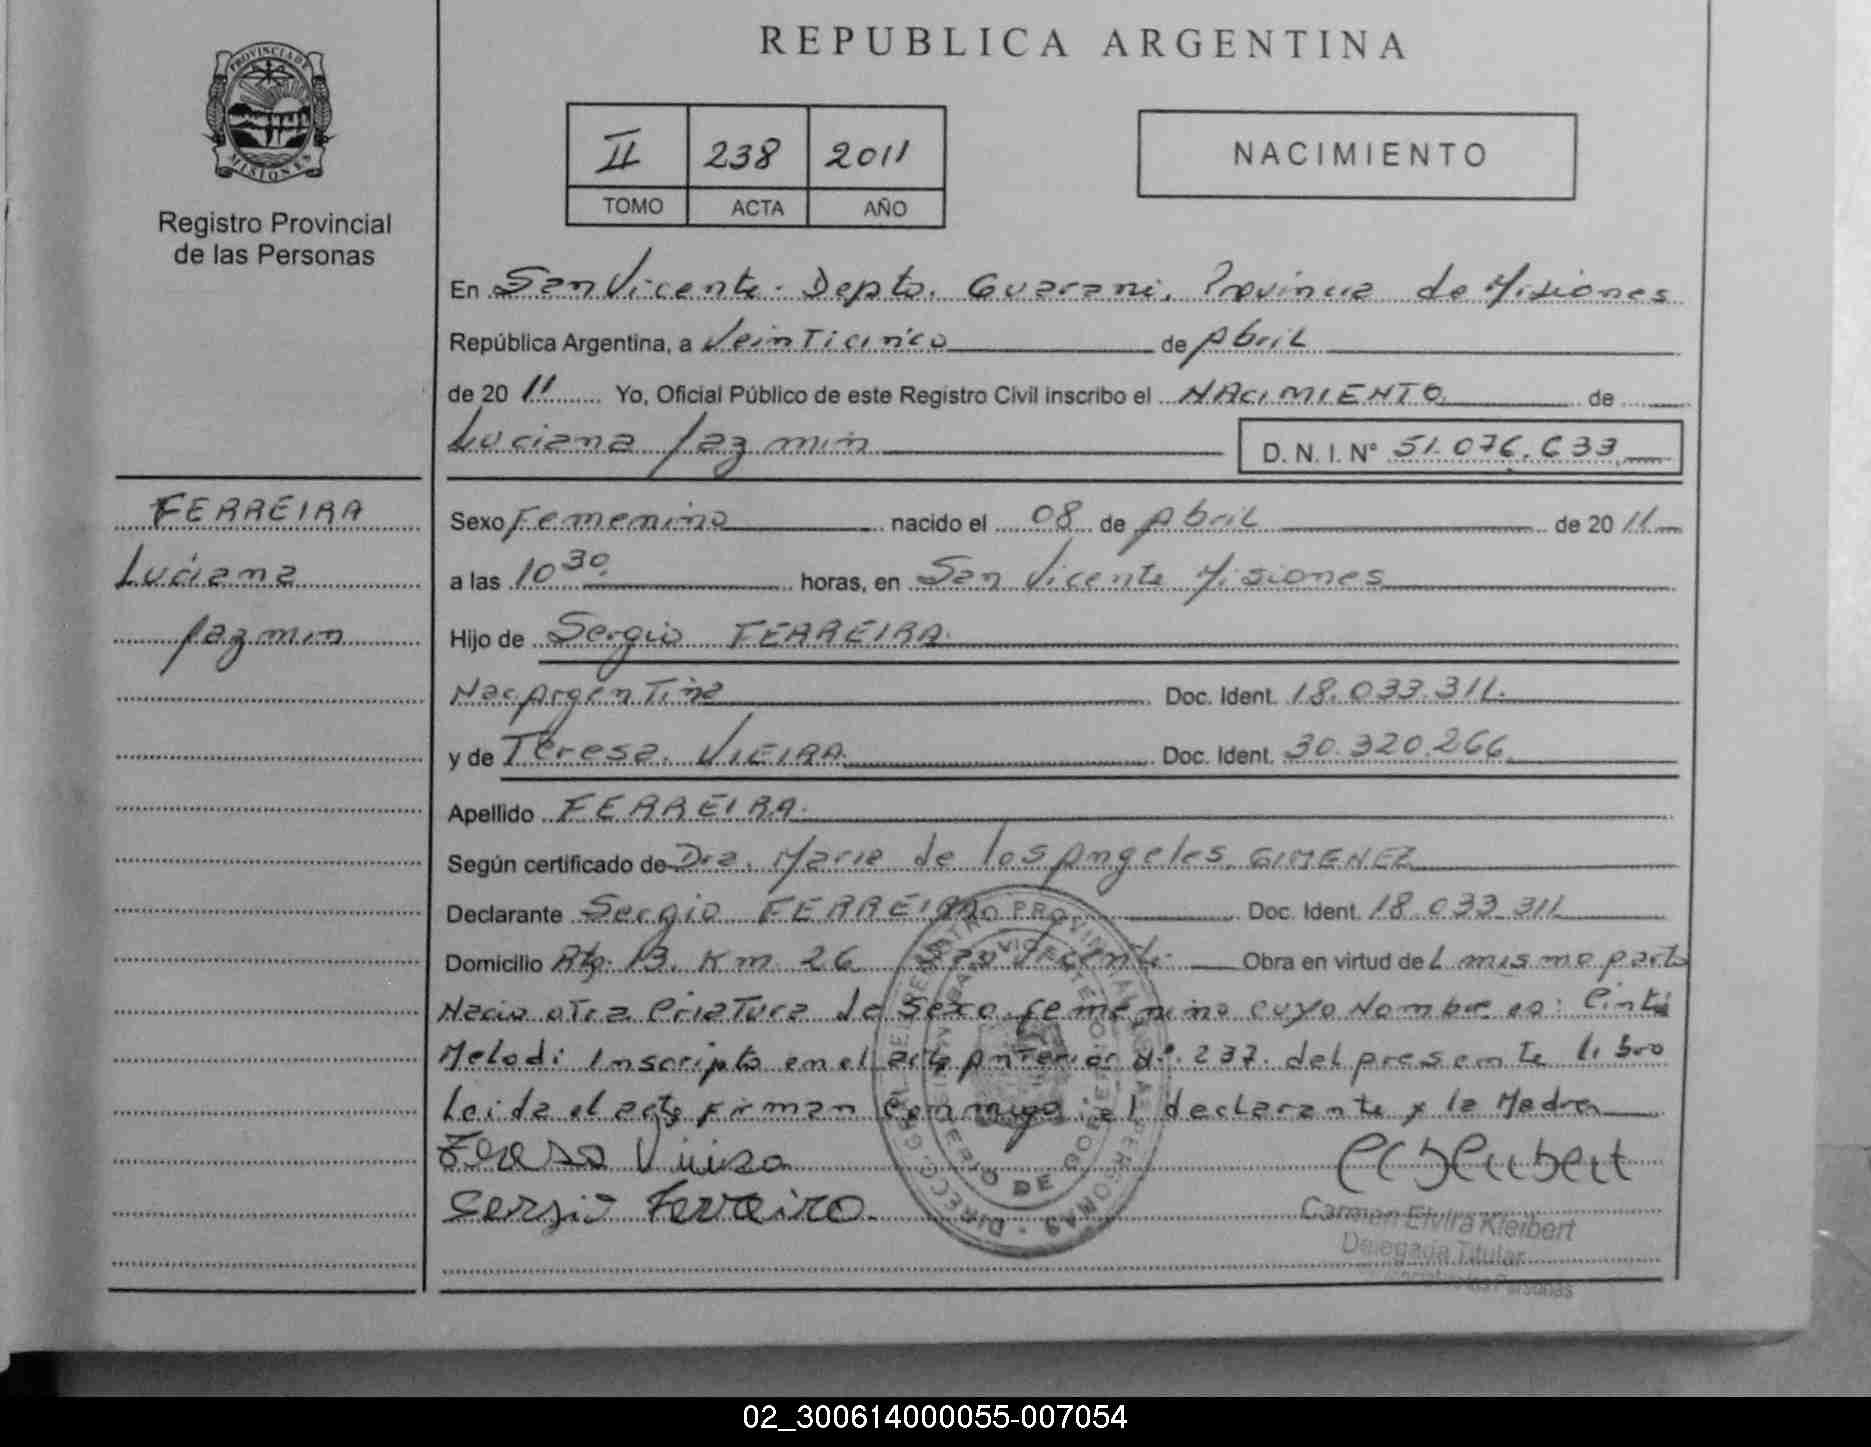 REPUBLICA ARGENTINA
PROVINCIA DE
MISIONES
Registro Provincial
de las Personas
II 238 2011
TOMO ACTA AÑO
NACIMIENTO
En San Vicente. Depto. Guarani. Provincia de Misiones
República Argentina, a Veinticinco de Abril
de 20 11 Yo, Oficial Público de este Registro Civil inscribo el NACIMIENTO de
Luciana Jazmin D. N. I. N° 51.076.633
FERREIRA
Luciana
Jazmin
Sexo Femenino nacido el 08 de Abril de 20 11
a las 10 30 horas, en San Vicente Misiones
Hijo de Sergio FERREIRA
Nac Argentina Doc. Ident. 18.033.311.
y de Teresa. VIEIRA Doc. Ident. 30.320.266
Apellido FERREIRA
Según certificado de Dra. Maria de los Angeles GIMENEZ
Declarante Sergio FERREIRA Doc. Ident. 18.033.311
Domicilio Rta. 13. Km 26 San Vicente Obra en virtud de L mismo parto
Nacio otra Criatura de sexo femenino cuyo Nombre es:
Melodi Inscripto en el acta Anterior N°. 237. del presente libro
Leida el acta firman conmigo el declarante y la Madre
Teresa Vieira
Sergio Ferreira
Carmen Elvira Kleibert
Delegada Titular
de las Personas
02_300614000055-007054